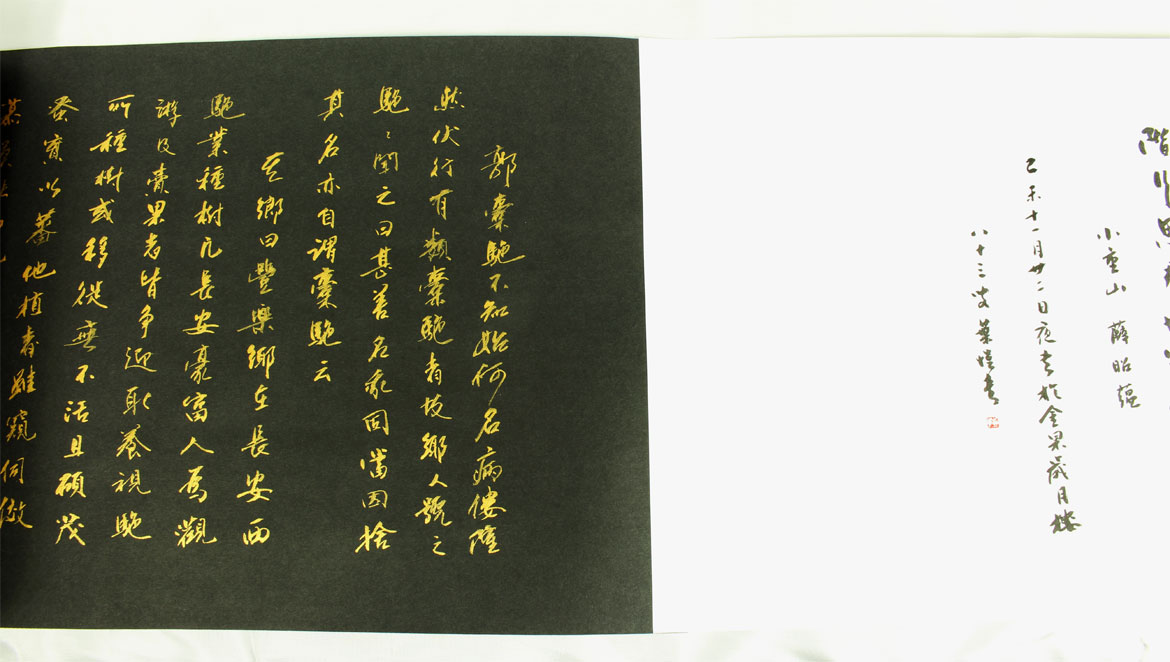 階行
小重山 薛昭蘊
己未十一月廿二日夜書於金果歲月樓
八十三叟葉書
郭橐駞不知始何名病僂隆
然伏行有類橐駞者故鄉人號之
駞〻聞之曰甚善名我固當因捨
其名亦自謂橐駞云
其鄉曰豐樂鄉在長安西
駞業種樹凡長安豪富人爲觀
游及賣果者皆爭迎取養視駞
所種樹或移徙無不活且碩茂
蚤實以蕃他植者雖窺伺傚
慕莫